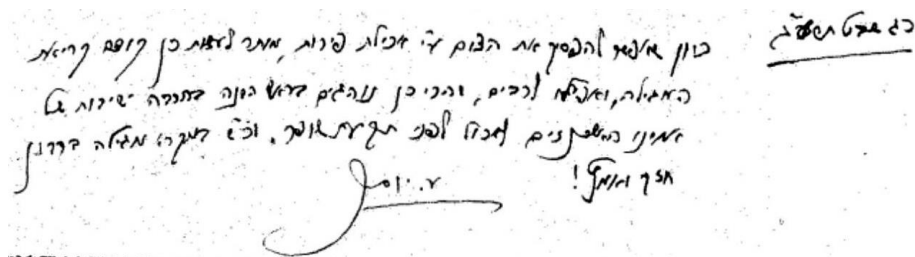 כג שבט תשע"ג
כוון שאפשר להפסיק את הצום ע"י אכילת פירות, מותר לעשות כן קודם קריאת
המגילה, ואפילו לרבים, והרי כן נוהגים בראש השנה בהרבה ישיבות של
אחינו האשכנזים לאכול לפני תקיעת שופר, וכ"ש במקרא מגילה בדרבנן
חזק ואמץ!
ע. יוסף